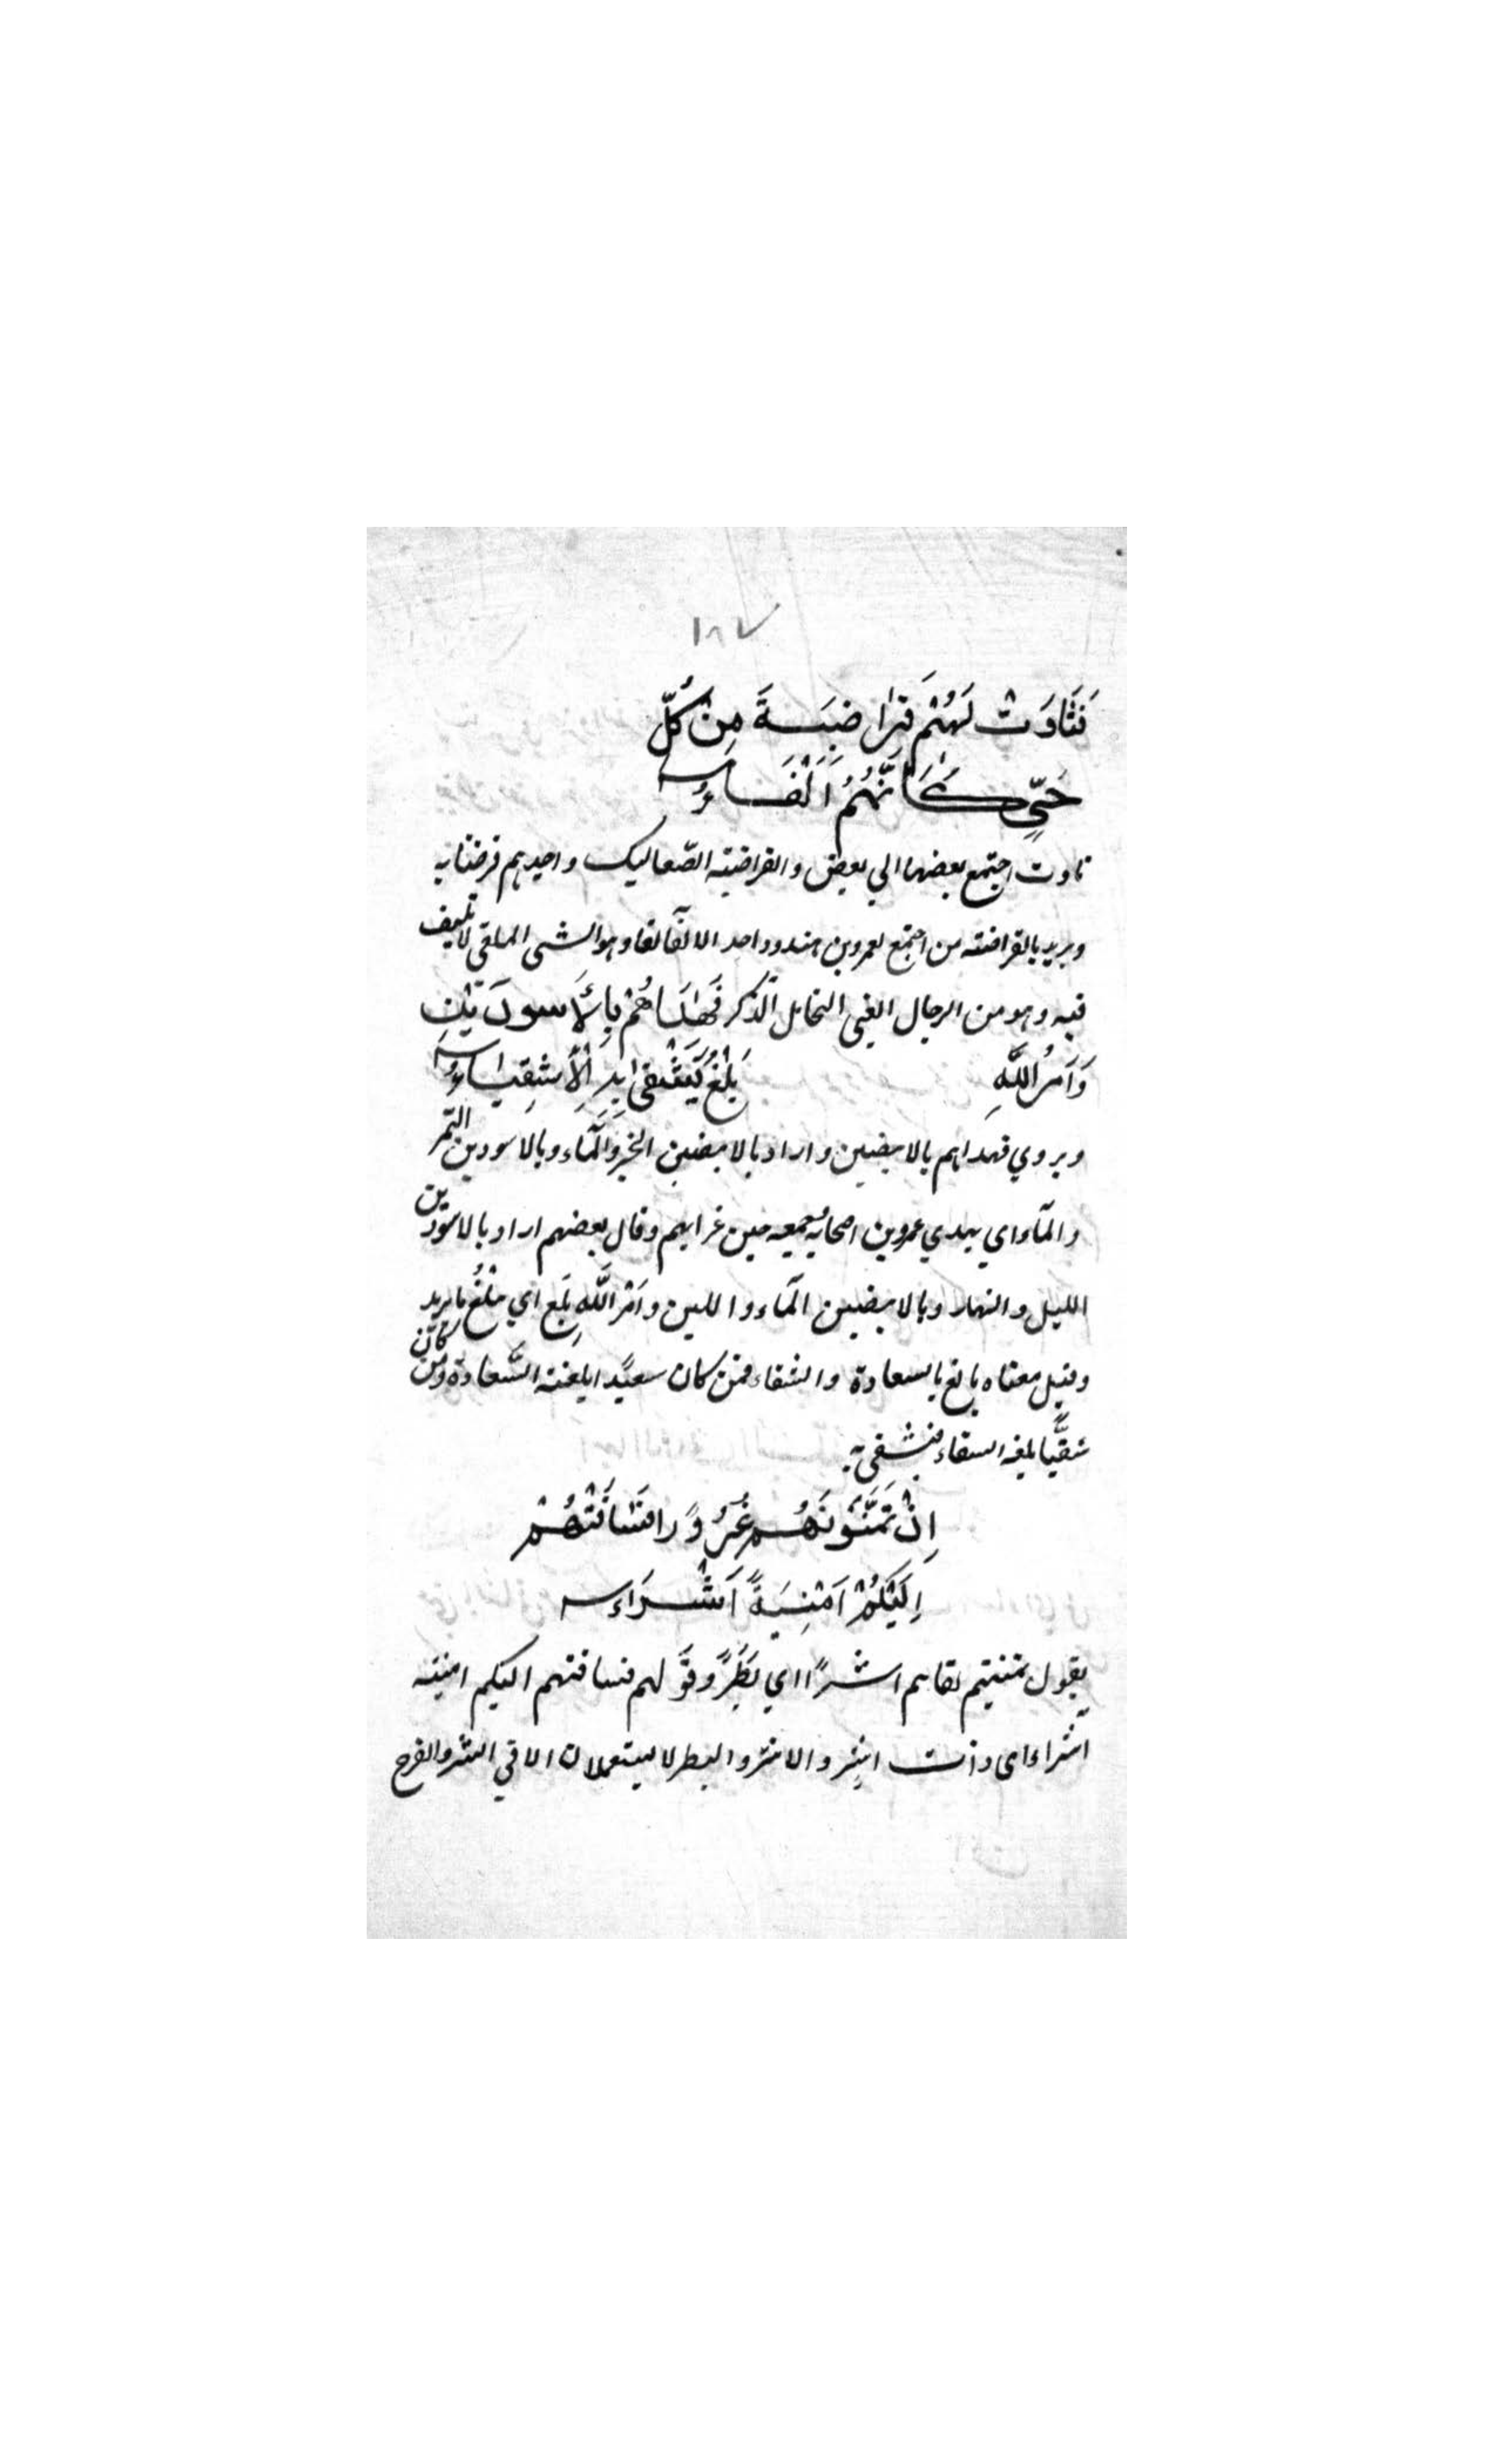 ١٨٧
فَتَاوَتْ لَهُمْ قَرَاضِبَةَ مِنْ كُلِّ
حَيٍّ كَأَنَّهُمُ اَلْقَاءُ
تاوت اجتمع بعضها الي بعض والقراضبته الصّعاليك واحدهم قرضاب
ويريد بالقراضته من اجتمع لعمروبن هند وواحد الالقآ لقا وهو الشى الملقى لا
فيه وهو من الرجال الغبى الخامل الذكر فَهَدَاهُمْ بِالْأَسودَيْنِ
وَاَمْرُ اللَّهِ بَلْغٌ يَشْقَى بِهِ الْأَشْقِيَاءُ
ويروي فهداهم بالابيضين واراد بالابيضين الخبز والمآء وبالاسودين التّمر
والمآ اي يهدي عمروبن اصحابه حين غزابهم وقال بعضهم اراد بالاسودين
الليل والنهار وبالابيضين المآء واللبن وَاَمْرُ اللَّهِ بَلْغ اي مبْلغُ ما يريد
وقيل معناه بالغ بالسعادة والشقاء فمن كان سعيدًا بلغته السَّعادة ومن كان
شقيًّا بلغه السقاء فيشقى به
اِذْ تَمَنَّوْنَهُمْ غُرُوْرًا فَسَاقَتْهُمْ
اِلَيْكُمْ اُمْنِيَةً اَشْرَاء
يقول تمنيتم لقاهم اشرًا اي بَطَرًا وقوَ لهم فساقتهم اليكم امنيته
اشراء اى ذات اشر والاشر والبطر لا يستعملان الا في الشر والفرح